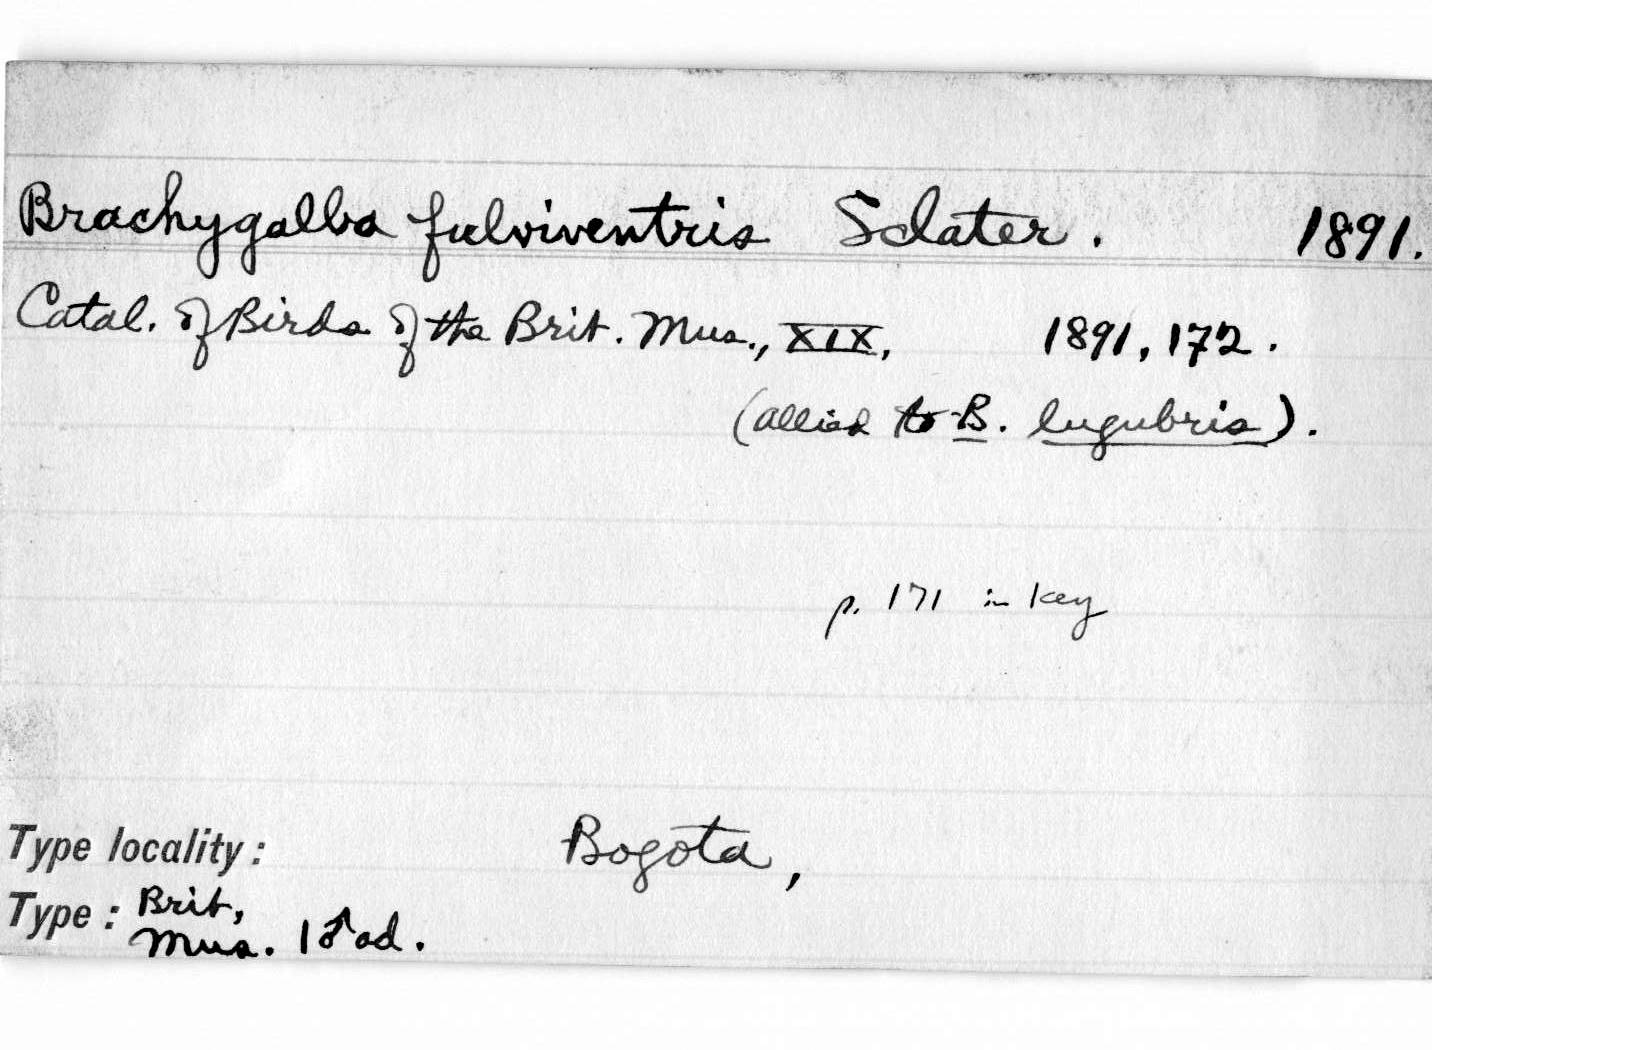 Brachygalba fulviventris Sclater. 1891.
Catal. of Birds of the Brit. Mus., XIX, 1891, 172.
(allied to B. lugubris).
p. 171 in key
Type locality: Bogota,
Type: Brit.
Mus. 1 ♂ ad.